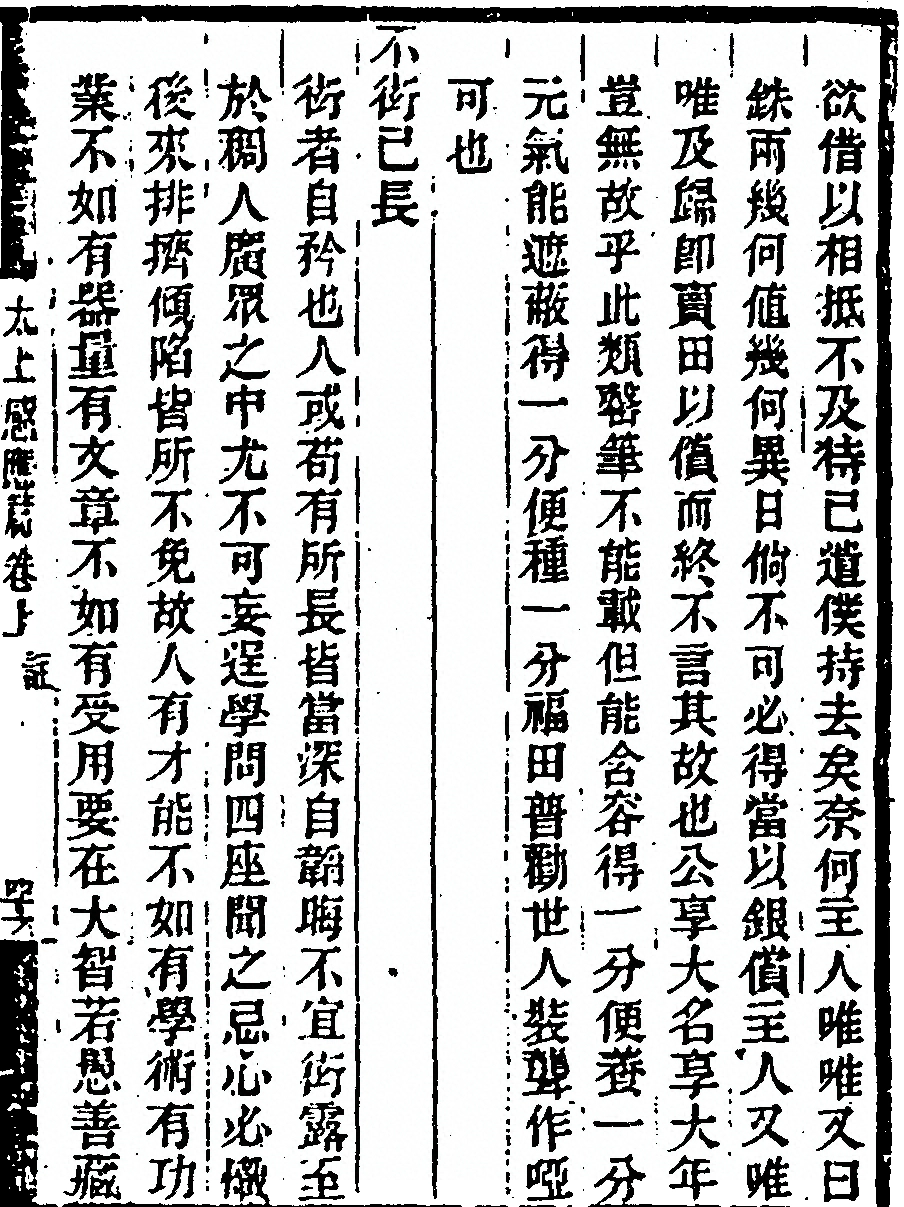 欲借以相抵不及待已遣僕持去矣奈何主人唯唯又曰
銖兩幾何値幾何異日倘不可必得當以銀償主人又唯
唯及歸卽賣田以償而終不言其故也公享大名享大年
豈無故乎此類罄筆不能載但能含容得一分便養一分
元氣能遮蔽得一分便種一分福田普勸世人裝聾作啞
可也
不衒己長
衒者自矜也人或苟有所長皆當深自韜晦不宜衒露至
於稠人廣眾之中尤不可妄逞學問四座聞之忌心必熾
後來排擠傾陷皆所不免故人有才能不如有學術有功
業不如有器量有文章不如有受用要在大智若愚善藏
太上感應篇卷上 註